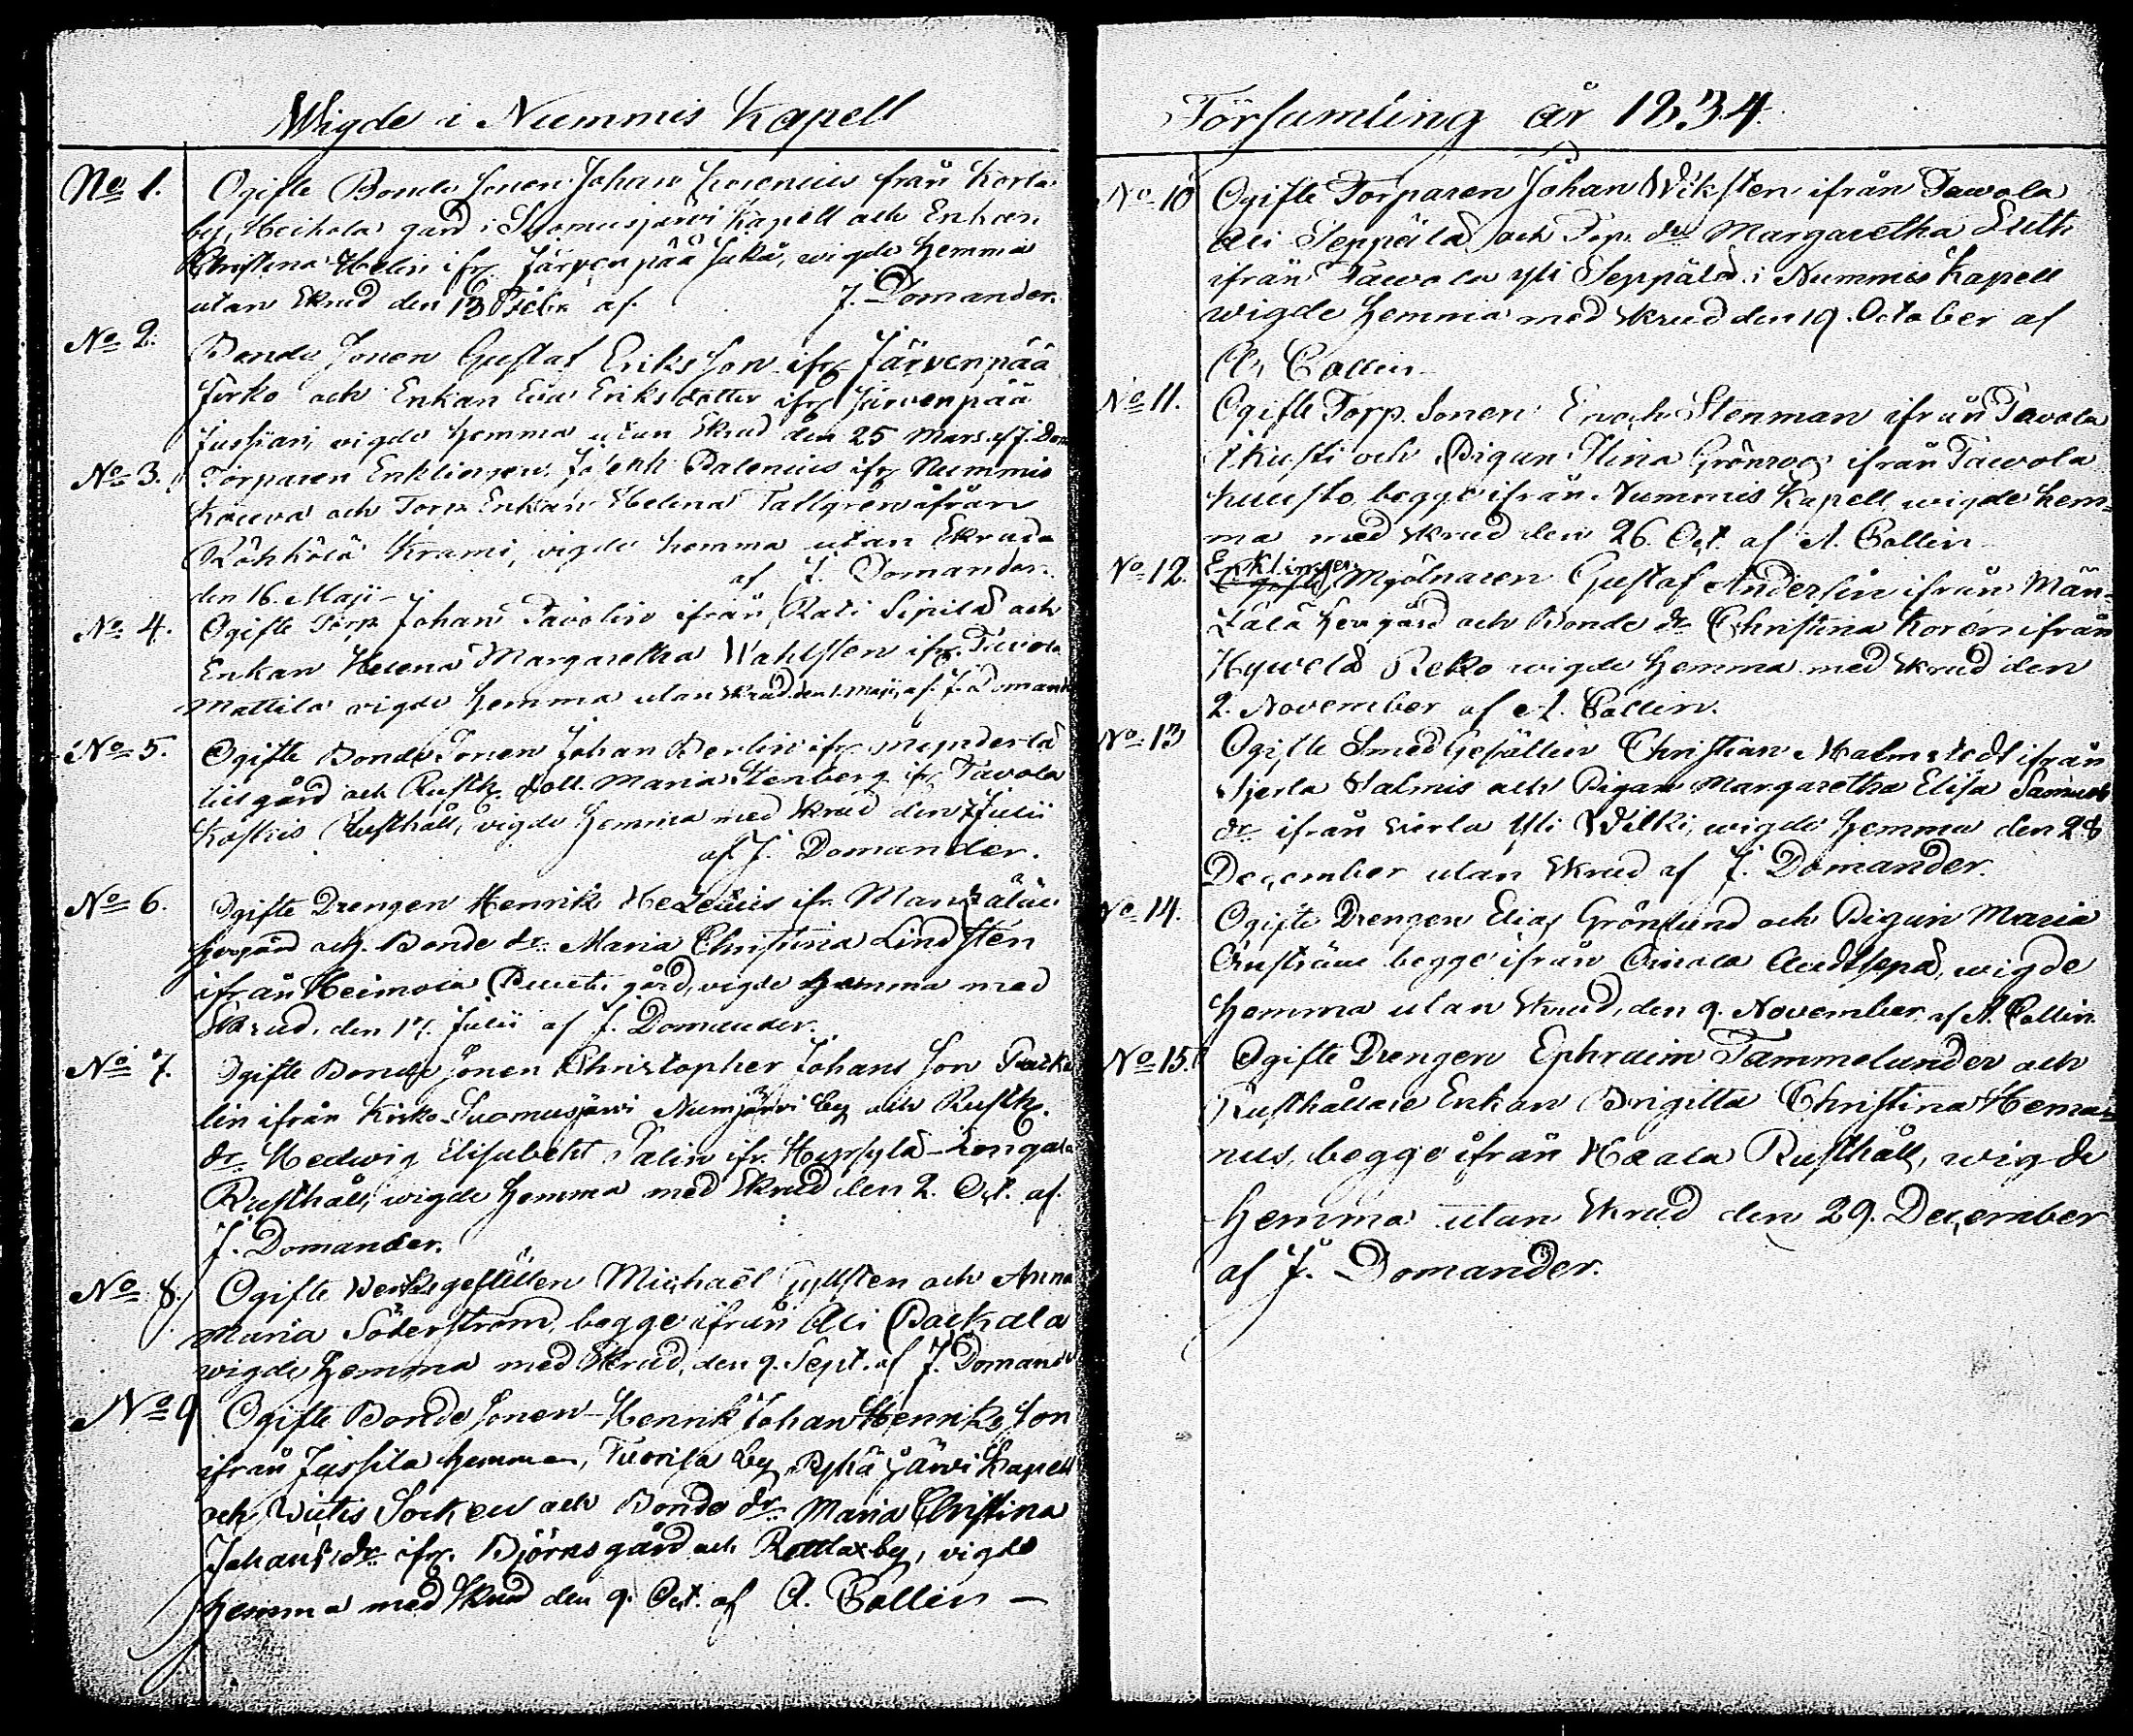 Wigde i Nummis Kapell
No 1. Ogifte Bonde Sonen Johan från Korla
by, Heikola gård i Suomusjärvi Kapell och Enkan
Christina Helin ifr. Järvenpää wigde hemma
utan Skrud den 13 af J. Domander.
No 2. Bonde Sonen Gustaf Eriks Son ifr Järvenpää
och Enkan Eva Eriksdotter ifr Järvenpää
Jussian, vigde hemma utan Skrud den 25 Mars. af J. Dom
No 3. Torparen Enklingen Joseph Palenius ifr Nummis
och Torp. Enkan Helena Tallgren ifrån
vigde hemma utan Skrud
den 16. Maji af J. Domander.
No 4. Ogifte Torp. Johan Tavolin ifrån Rati Sipilä och
Enkan Helena Margaretha Wahlsten ifr. Tavola
Mattila vigde hemma utan Skrud den 1. Maji, af J. Domand
No 5. Ogifte Bonde Sonen Johan Berlin ifr
gård och Rusth. dott. Maria Stenberg ifr Tavola
Koskis Rusthåll, vigde hemma med Skrud den Julii
af J. Domander.
No 6. Ogifte Drengen Henrik ifr. Mantzälä
hergård och Bonde dr. Maria Christina Lindsten
ifrån Heimola gård, vigde hemma med
Skrud, den 17. Julii af J. Domander.
No 7. Ogifte Bonde Sonen Christopher Johans Son
lin ifrån Kirko Suomusjärvi Numjärvi by och Rusth.
dr. Hedwig Elisabeht Palin ifr.
Rusthåll, wigde hemma med Skrud den 2. Oct. af
J. Domander.
No 8. Ogifte Michaël Gyllsten och Anna
Maria Söderström, begge ifrån Ali Paekala
wigde hemma med Skrud, den 9. Sept. af J. Domand
No 9 Ogifte Bonde Sonen Henrik Johan Henriks Son
ifrån Jussila hemman, Tuorila by Pyhäjärvi Kapell
och Wittis Socken och Bonde dr. Maria Christina
Johans dr. ifr. Björns gård och by, vigde
hemma med Skrud den 9. Oct. af A. Collin –
Församling år 1834.
No 10 Ogifte Torparen Johan Wiksten ifrån Tawola
Ali Seppälä och Torp. dr Margaretha Luth
ifrån Tawola Yli Seppälä i Nummis Kapell
wigde hemma med Skrud den 19. October af
A. Collin
No 11. Ogifte Torp. Sonen Enoch Stenman ifrån Tavola
och Pigan Stina Grönroos ifrån Tawola
begge ifrån Nummis Kapell wigde hem=
ma med Skrud den 26. Oct. af A. Collin
No 12. Enklingen Mjölnaren Gustaf Andersin ifrån Män=
tzälä hergård och Bonde dr Christina Koren ifrån
Hywelä Peko wigde hemma med Skrud den
2. November af A. Collin.
No 13 Ogifte Smed Gesällen Christian Malmstedt ifrån
Sierla Salmis och Pigan Margaretha Elisa Samuels
dr ifrån Sierla Yli Wilki, wigde hemma den 28
December utan Skrud af J. Domander.
No 14. Ogifte Drengen Elias Grönlund och Pigan Maria
begge ifrån wigde
hemma utan Skrud, den 9. November af A. Collin.
No 15. Ogifte Drengen Ephraim Tammelander och
Rusthållare Enkan Brigitta Christina Hema=
nus, begge ifrån Haala Rusthåll, wigde
hemma utan Skrud den 29. December
af J. Domander.